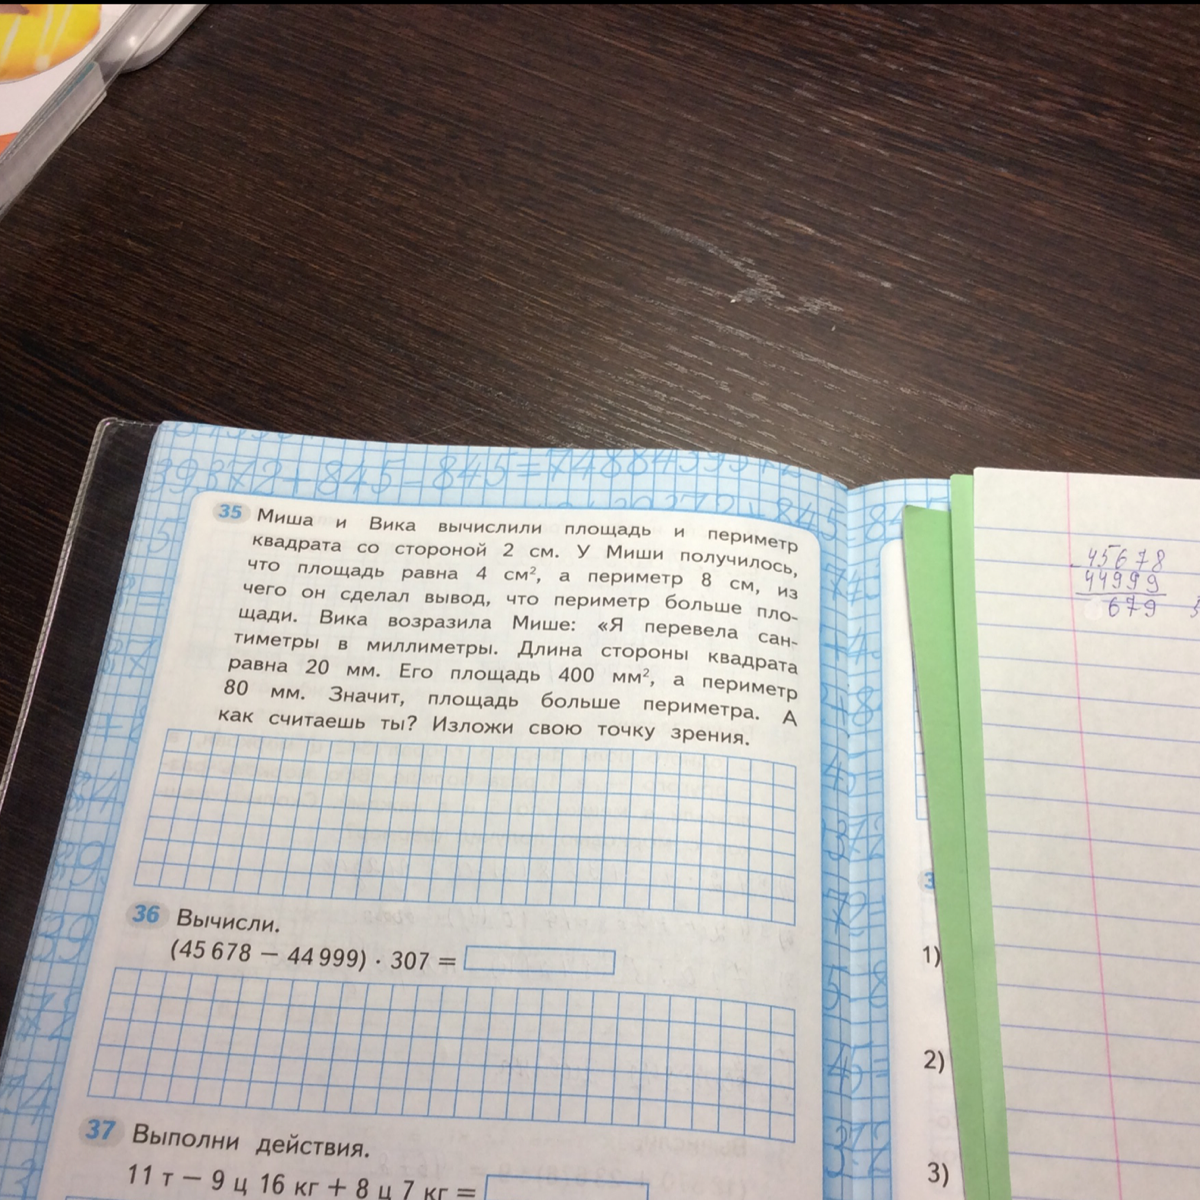 39372+845-845=74884599
35 Миша и Вика вычислили площадь и периметр
квадрата со стороной 2 см. У Миши получилось,
что площадь равна 4 см², а периметр 8 см, из
чего он сделал вывод, что периметр больше пло-
щади. Вика возразила Мише: «Я перевела сан-
тиметры в миллиметры. Длина стороны квадрата
равна 20 мм. Его площадь 400 мм², а периметр
80 мм. Значит, площадь больше периметра. А
как считаешь ты? Изложи свою точку зрения.
36 Вычисли.
(45 678 − 44 999) · 307 =
37 Выполни действия.
11 т − 9 ц 16 кг + 8 ц 7 кг =
1)
2)
3)
45678
44999
679